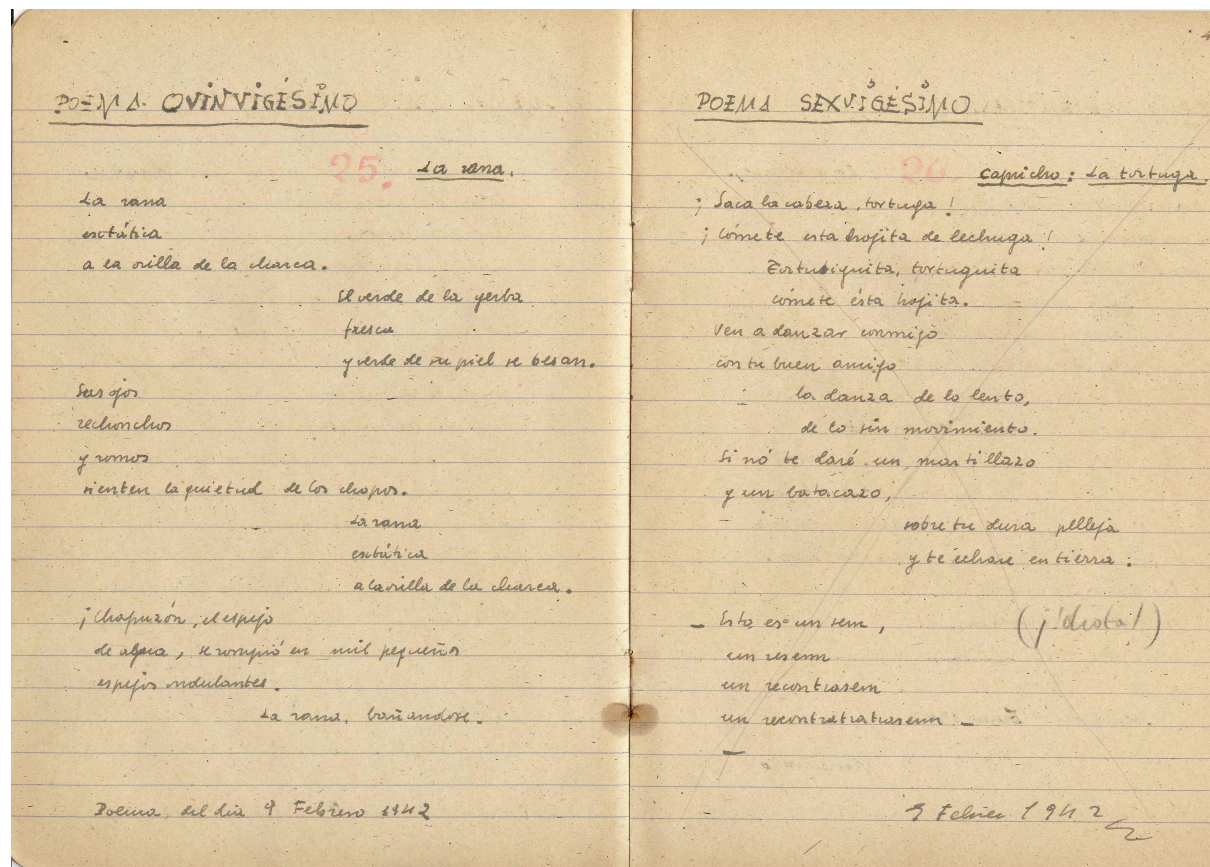 POEMA QVINVIGÉSIMO
25. La rana.
La rana
extática
a la orilla de la charca.
El verde de la yerba
fresca
y verde de su piel se besan.
Sus ojos
rechonchos
y romos
sienten la quietud de los chopos.
La rana
extática
a la orilla de la charca.
¡Chapuzón, el espejo
de agua, se rompió en mil pequeños
espejos ondulantes.
La rana, bañandose.
Poema del dia 9 Febrero 1942
4
POEMA SEXVIGÉSIMO
26. Capricho: La tortuga.
¡Saca la cabeza, tortuga!
¡Cómete esta hojita de lechuga!
tortuguita
cómete ésta hojita.
Ven a danzar conmigo
con tu buen amigo
la danza de lo lento,
de lo sin movimiento.
Si nó te daré un martillazo
y un batacazo,
sobre tu dura pelleja
y te echare en tierra:
— Esto es un sem,
(¡idiota!)
un resem
un recontrasem
—
9 Febrer 1942